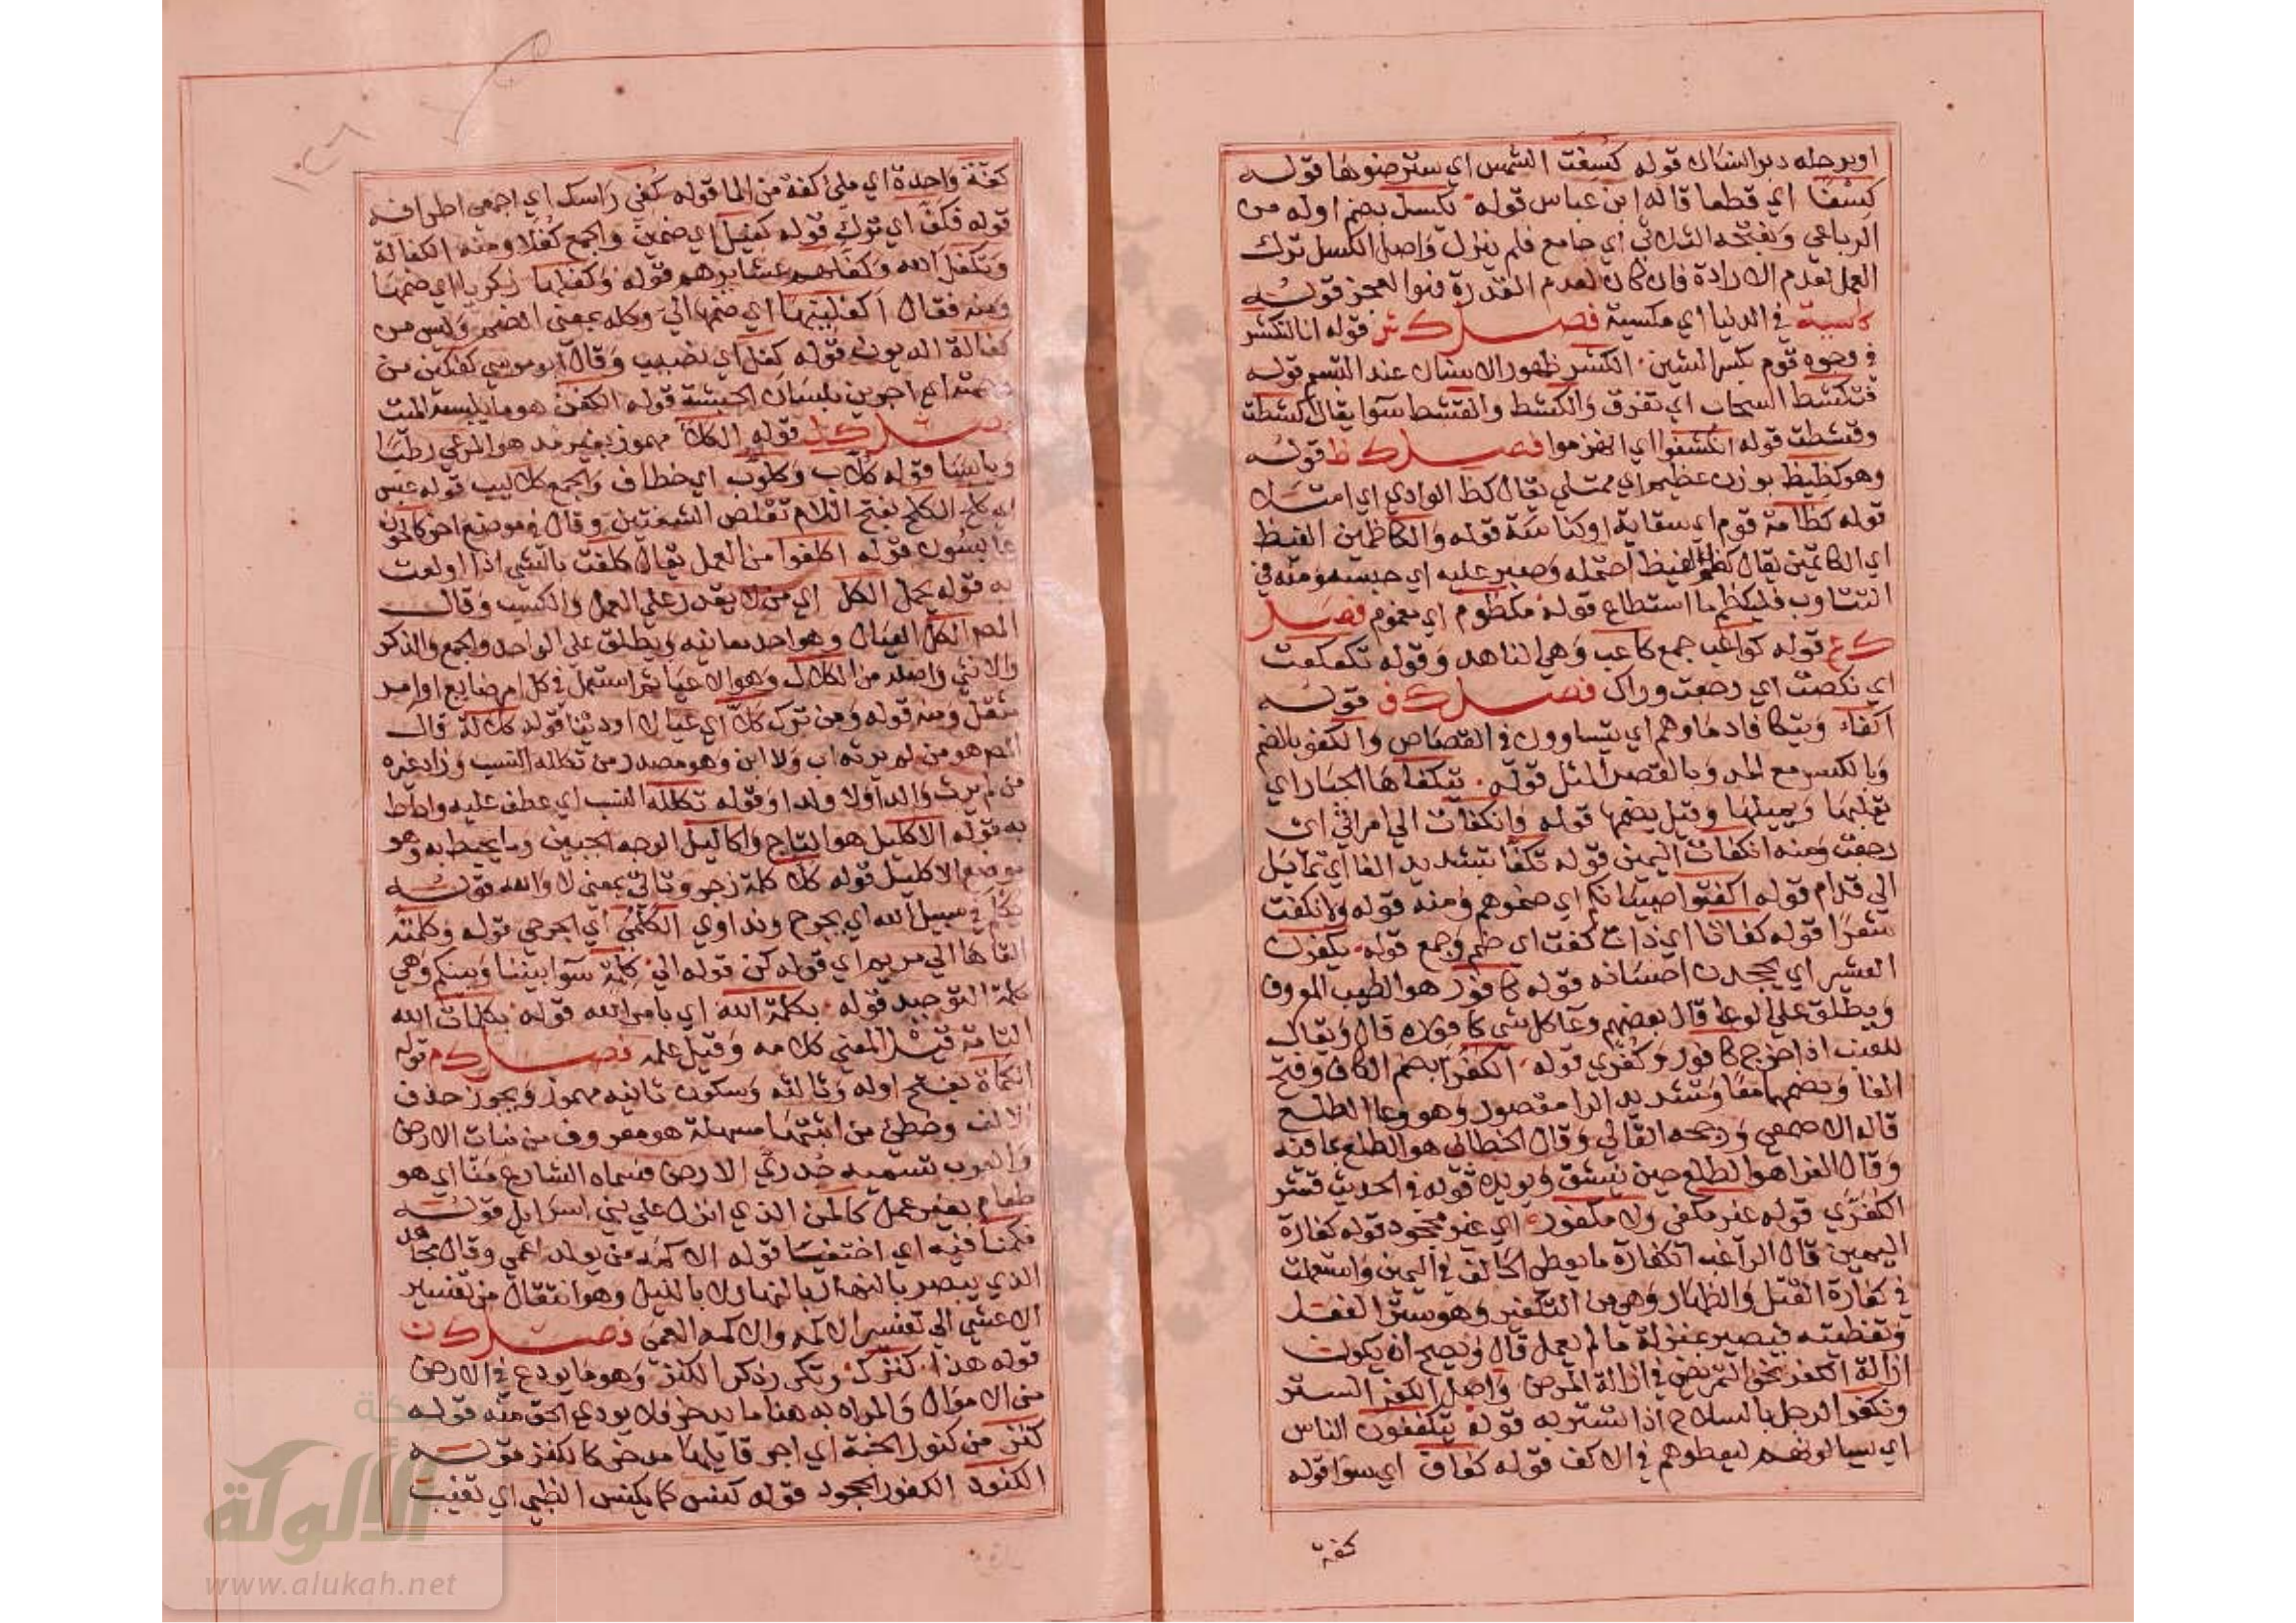 او برجله دبر انسان قوله كسفت الشمس اي ستر ضوءها قوله
كِسَفًا اي قطعا قاله ابن عباس قوله يكسل بضم اوله من
الرباعي وبفتحه الثلاثي اي جامع فلم ينزل واصل الكسل ترك
العمل لعدم الارادة فان كان لعدم القدرة فهو العجز قوله
كاسية في الدنيا اي مكسية فصل ك ش قوله انا لنكشر
في وجوه قوم بكسر الشين الكشر ظهور الاسنان عند التبسم قوله
فتكشط السحاب اي تفرق والكشط والقشط سوا يقال كشطت
وقشطت قوله انكشفوا اي انهزموا فصل ك ظ قوله
وهو كظيظ بوزن عظيم اي ممتلي يقال كظ الوادي اي امتلا
قوله كظامة قوم اي سقاية او كناسة قوله والكاظمين الغيظ
اي الكاتمين يقال كظم الغيظ احتمله وصبر عليه اي حبسه ومنه في
التثاوب فليكظم ما استطاع قوله مكظوم اي مغموم فصل
ك ع قوله كواعب جمع كاعب وهي الناهد وقوله تكعكعت
اي نكصت اي رجعت وراك فصل ك ف قوله
اكفاء ويتكافا دماوهم اي يتساوون في القصاص والكفو بالضم
وبالكسر مع المد وبالقصر المثل قوله يتكفاها الجبار اي
يقلبها ويميلها وقيل يضمها قوله وانكفات الي امراتي اي
رجعت ومنه انكفات اليمين قوله تكفا بتشديد الفا اي تمايل
الي قدام قوله اكفتوا صبيانكم اي ضموهم ومنه قوله ولا نكفت
شعرا قوله كفاتا اي ذات كفت اي ضم وجمع قوله يكفرن
العشير اي يجحدن احسانه قوله كافور هو الطيب المعروف
ويطلق علي الوعا قال بعضهم وعا كل شي كافوره قال ويقال
للعنب اذا خرج كافور وكفري قوله الكفرا بضم الكاف وفتح
الفا وبضمهما معا وتشديد الرا مقصور وهو وعا الطلع
قاله الاصمعي ورجحه القالي وقال الخطابي هو الطلع بما فيه
وقال الفرا هو الطلع حين ينشق ويويده قوله في الحديث قشر
الكفري قوله غير مكفي ولا مكفور اي غير مجحود قوله كفارة
اليمين قال الراغب الكفارة ما يعطي الحالف في اليمين واستعملت
في كفارة القتل والظهار وهي من التكفير وهو ستر الفعل
وتغطيته فيصير بمنزلة ما لم يعمل قال ويصح ان يكون
ازالة الكفر نحو التمريض في ازالة المرض واصل الكفر الستر
وتكفر الرجل بالسلاح اذا تستر به قوله يتكففون الناس
اي يسالونهم ليعطوهم في الاكف قوله كفاف اي سوا قوله
كفة
كفة واحدة اي ملئ كفة من الما قوله كفي راسك اي اجمعي اطرافه
قوله فكف اي ترك قوله كفيل اي ضمين والجمع كفلا ومنه الكفالة
وتكفل الله وكفلهم عشايرهم قوله وكفلها زكريا اي ضمها
ومنه فقال اكفلنيها اي ضمها الي وكله بمعني الضم وليس من
كفالة الديون قوله كفل اي نصيب وقال ابو موسي كفلين من
رحمته اي اجرين بلسان الحبشة قوله الكفن هو ما يلبسه الميت
فصل ك ل قوله الكلأ مهموز بغير مد هو المرعي رطبا
ويابسا قوله كلاب وكلوب اي خطاف والجمع كلاليب قوله عبس
اي كلح الكلح بفتح اللام تقلص الشفتين وقال في موضع اخر كالحون
عابسون قوله اكلفوا من العمل يقال كلفت بالشي اذا اولعت
به قوله يحمل الكل اي من لا يقدر علي العمل والكسب وقال
المص الكل العيال وهو احد معانيه ويطلق علي الواحد والجمع والذكر
والانثي واصله من الكلال وهو الاعيا ثم استعمل في كل امر ضايع او امر
مثقل ومنه قوله ومن ترك كلا اي عيالا او دينا قوله كلالة قال
المص هو من لم يرثه اب ولا ابن وهو مصدر من تكلله النسب وزاد غيره
من لم يرث والدا ولا ولدا وقوله تكلله النسب اي عطف عليه واحاط
به قوله الاكليل هو التاج واكاليل الوجه الجبين وما يحيط به وهو
موضع الاكليل قوله كلا كلمة زجر وتاتي بمعني لا والله قوله
يكلم في سبيل الله اي يجرح ونداوي الكلمي اي الجرحي قوله وكلمته
القاها الي مريم اي قوله كن قوله الي كلمة سوا بيننا وبينكم وهي
كلمة التوحيد قوله بكلمة الله اي بامر الله قوله بكلمات الله
التامة قيل المعني كلامه وقيل علمه فصل ك م قوله
الكماة بفتح اوله وثالثه وسكون ثانيه مهموز ويجوز حذف
الالف وخطئ من اثبتها مسهلة هو معروف من نبات الارض
والعرب تسميه جدري الارض فسماه الشارع منا اي هو
طعام بغير عمل كالمن الذي انزل علي بني اسرايل قوله
فكمنا فيه اي اختفينا قوله الاكمه من يولد اعمي وقال مجاهد
الذي يبصر بالنهار لا بالليل وهو انتقال من تفسير
الاعشي الي تفسير الاكمه والاكمه العمي فصل ك ن
قوله هذا كنزك وتكرر ذكر الكنز وهو ما يودع في الارض
من الاموال والمراد به هنا ما يدخر فلا يودي الحق منه قوله
كنز من كنوز الجنة اي اجر قايلها مدخر كالكنز قوله
الكنود الكفور الجحود قوله كنس كما يكنس الظبي اي تغيب
الألوكة
www.alukah.net